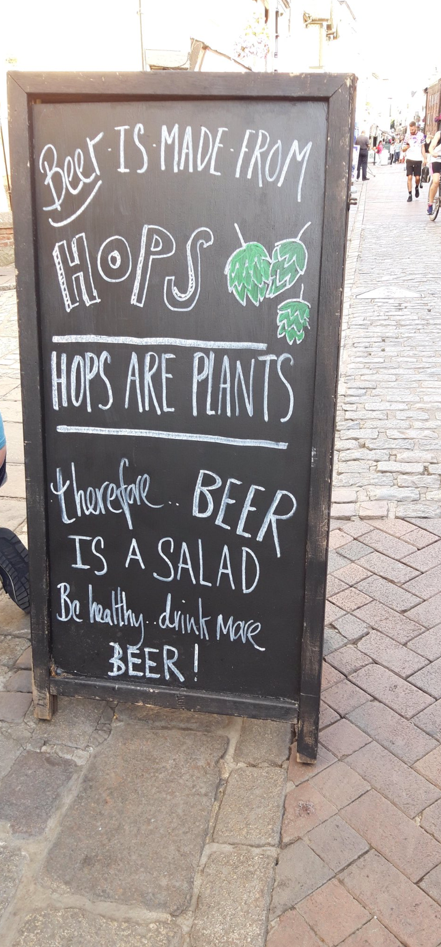 Beer·IS·MADE·FROM
HOPS
HOPS ARE PLANTS
therefore.. BEER
IS A SALAD
Be healthy..drink more
BEER!